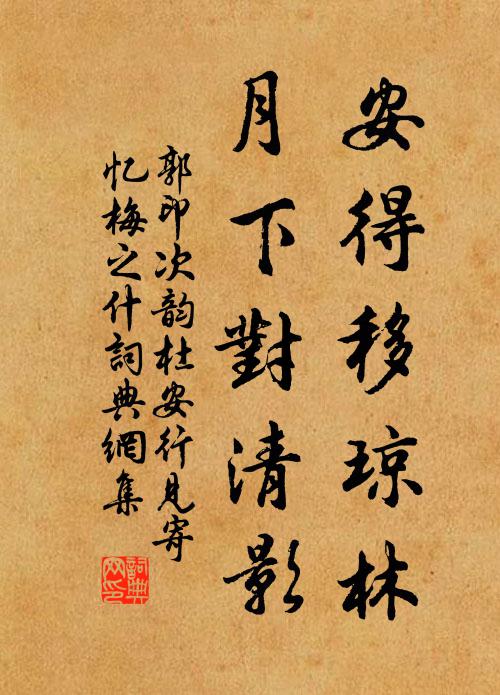 安得移琼林
月下對清影
郭印次韵杜安行見寄
忆梅之什詞典網集
詞典网印